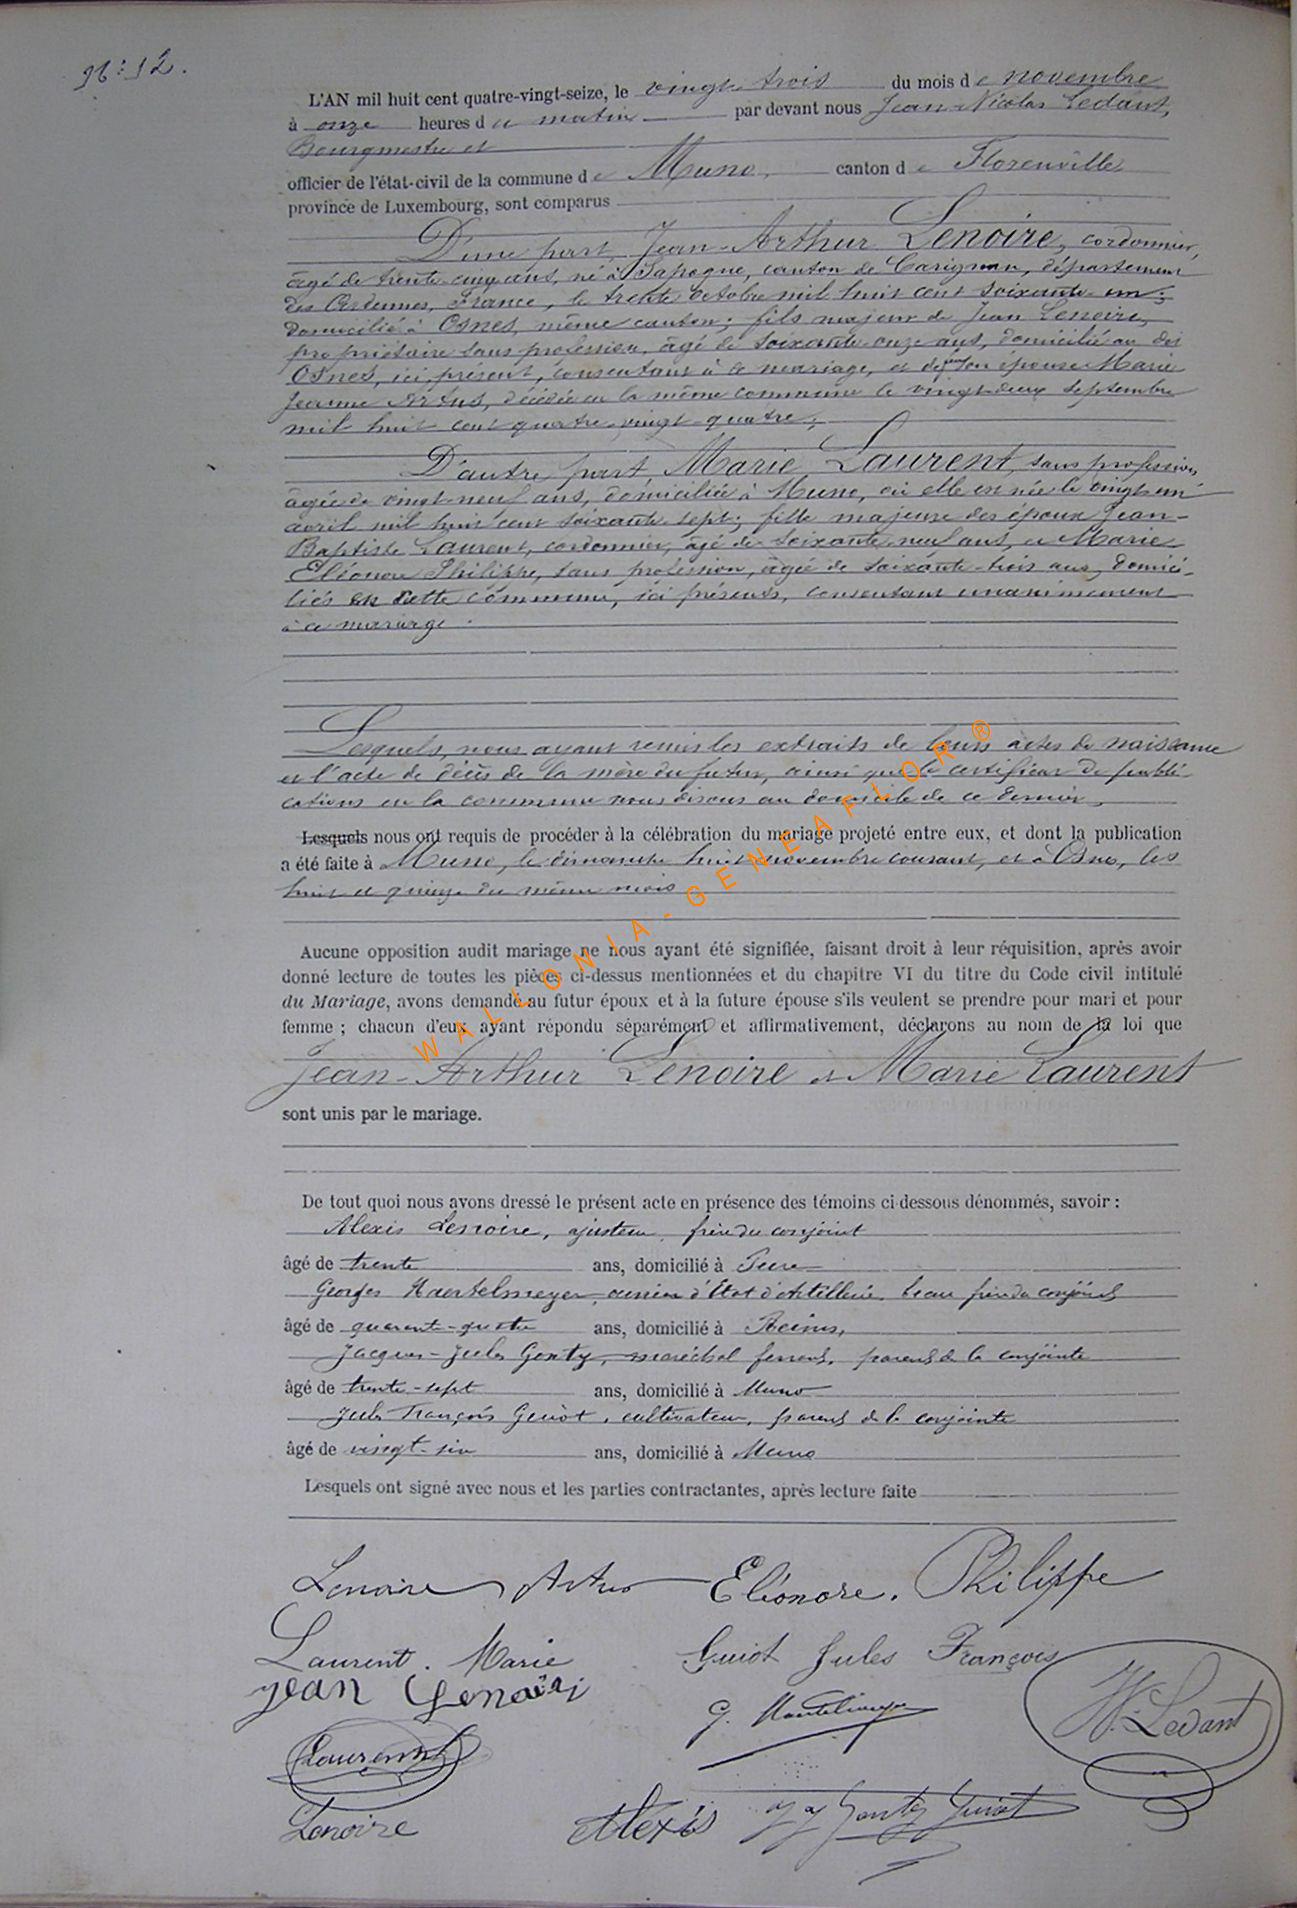 N° 12.
L'AN mil huit cent quatre-vingt-seize, le vingt trois du mois de novembre
à onze heures du matin par devant nous Jean-Nicolas Ledant,
Bourgmestre et
officier de l'état-civil de la commune de Muno, canton de Florenville
province de Luxembourg, sont comparus
D'une part, Jean-Arthur Lenoire, cordonnier,
âgé de trente-cinq ans, né à Sapogne, canton de Carignan, département
des Ardennes, France, le trente octobre mil huit cent soixante-un;
domicilié à Osnes, même canton; fils majeur de Jean Lenoire,
propriétaire sans profession, âgé de soixante-onze ans, domicilié au dit
Osnes, ici présent, consentant à ce mariage, et de feu son épouse Marie
Jeanne Artus, décédée en la même commune le vingt-deux septembre
mil huit cent quatre-vingt-quatre;
D'autre part Marie Laurent, sans profession,
âgée de vingt-neuf ans, domiciliée à Muno, où elle est née le vingt-un
avril mil huit cent soixante-sept; fille majeure des époux Jean-
Baptiste Laurent, cordonnier, âgé de soixante-neuf ans, et Marie
Eléonore Philippe, sans profession, âgée de soixante-trois ans, domici-
liés en cette commune, ici présents, consentant unanimement
à ce mariage.
Lesquels, nous ayant remis les extraits de leurs actes de naissance
et l'acte de décès de la mère du futur, ainsi que le certificat de publi-
cations en la commune du domicile de ce dernier,
Lesquels nous ont requis de procéder à la célébration du mariage projeté entre eux, et dont la publication
a été faite à Muno, le dimanche huit novembre courant, et à Osnes, les
huit et quinze du même mois
Aucune opposition audit mariage ne nous ayant été signifiée, faisant droit à leur réquisition, après avoir
donné lecture de toutes les pièces ci-dessus mentionnées et du chapitre VI du titre du Code civil intitulé
du Mariage, avons demandé au futur époux et à la future épouse s'ils veulent se prendre pour mari et pour
femme ; chacun d'eux ayant répondu séparément et affirmativement, déclarons au nom de la loi que
Jean-Arthur Lenoire et Marie Laurent
sont unis par le mariage.
De tout quoi nous avons dressé le présent acte en présence des témoins ci-dessous dénommés, savoir :
Alexis Lenoire, ajusteur, frère du conjoint
âgé de trente ans, domicilié à
Georges d'État d'Artillerie, beau frère du conjoint
âgé de quarante-quatre ans, domicilié à Reims,
Jacques-Jules Gonty, maréchal ferrant, parent de la conjointe
âgé de trente-sept ans, domicilié à Muno
Jules François Guiot, cultivateur, parent de la conjointe
âgé de vingt-six ans, domicilié à Muno
Lesquels ont signé avec nous et les parties contractantes, après lecture faite
Lenoire Artus Eléonore. Philippe
Laurent. Marie Guiot Jules François
Jean Lenoire G.
Laurent N. Ledant
Lenoire Alexis JJ Gonty Guiot
WALLONIA-GENEAFLOR®